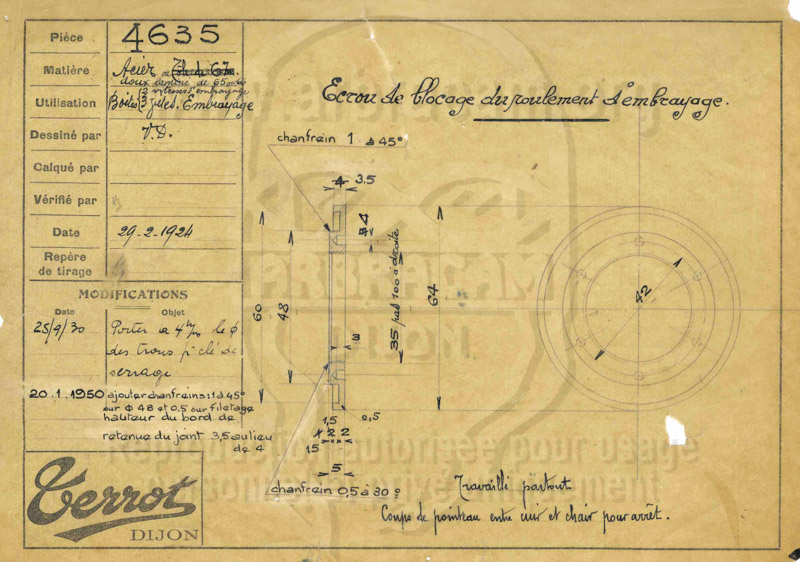 Pièce 4635
Matière Acier ou
doux laminé de 65
2 vitesses embrayage
Utilisation Boîtes 3 vites. Embrayage
Dessiné par V.D.
Calqué par
Vérifié par
Date 29-2-1924
Repère
de tirage
MODIFICATIONS
Date Objet
25/9/30 Porter à 4 m/m le ϕ
des trous pr clé de
serrage
20.1.1950 ajouter chanfreins: 1 à 45°
sur Φ 48 et 0,5 sur filetage
hauteur du bord de
retenue du joint 3,5 au lieu
de 4
Terrot
DIJON
Ecrou de blocage du roulement d'embrayage.
chanfrein 1 à 45°
4 3.5
4
60
48
35 pas 100 à droite
64
42
3
0,5
1,5
2 2
15
5
chanfrein 0,5 à 30°
Travaillé partout
Coups de pointeau entre cuir et chair pour arrêt.
ARBRACAM
DIJON
Reproduction autorisée pour usage
personnel et privé uniquement